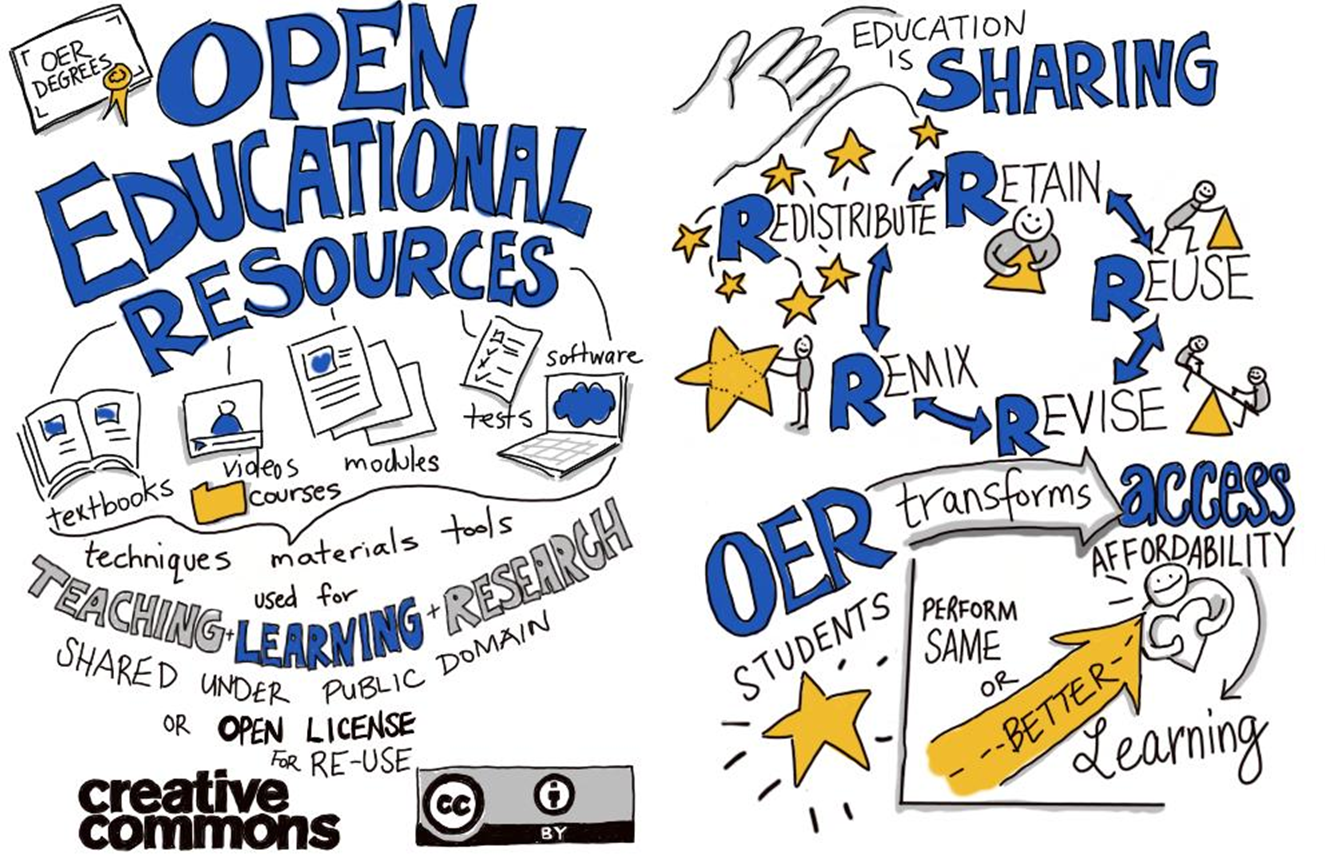 OER
DEGREES
OPEN
EDUCATIONAL
RESOURCES
textbooks
videos
courses
modules
tests
software
techniques materials tools
used for
TEACHING + LEARNING + RESEARCH
SHARED UNDER PUBLIC DOMAIN
OR OPEN LICENSE
FOR RE-USE
creative
commons
cc
BY
EDUCATION
IS SHARING
RETAIN
REDISTRIBUTE
REUSE
REMIX
REVISE
OER transforms access
AFFORDABILITY
STUDENTS
PERFORM
SAME
OR
BETTER
Learning